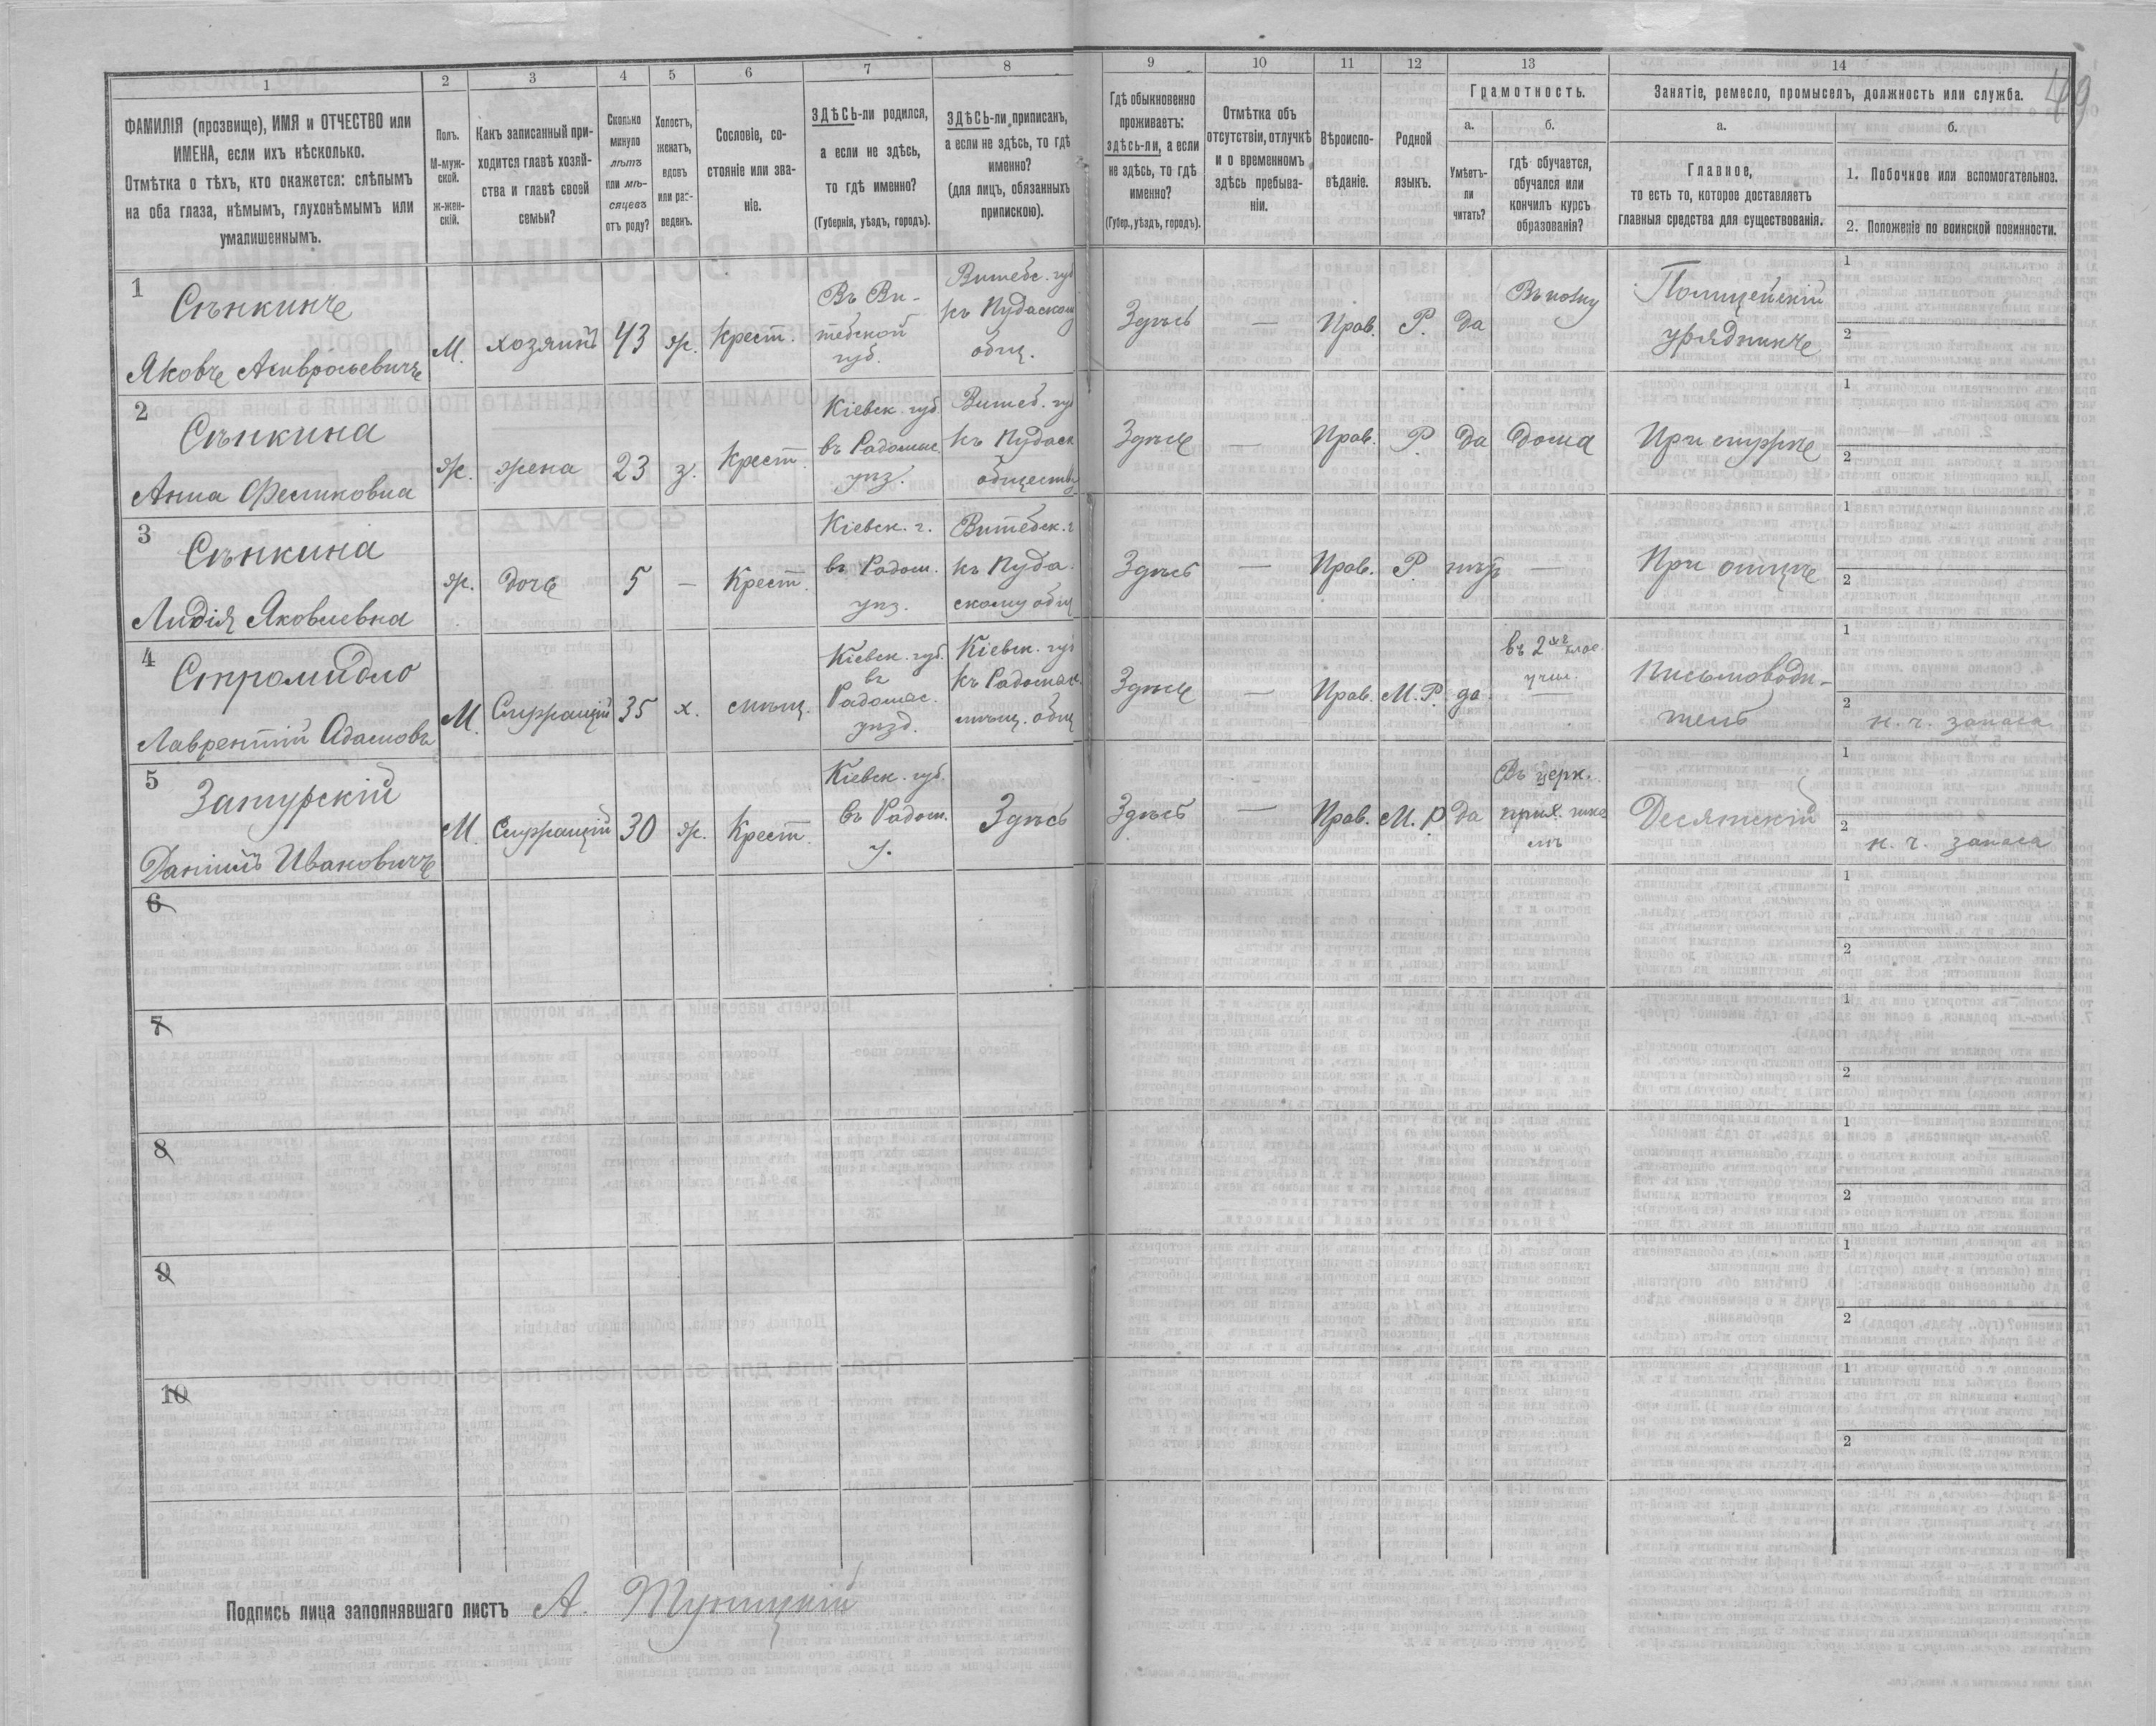 49
1 2 3 4 5 6 7 8 9 10 11 12 13 14
ФАМИЛІЯ (прозвище), ИМЯ и ОТЧЕСТВО или
ИМЕНА, если ихъ нѣсколько.
Отмѣтка о тѣхъ, кто окажется: слѣпымъ
на оба глаза, нѣмымъ, глухонѣмымъ или
умалишеннымъ.
Полъ.
М-муж-
ской.
ж-жен-
скій.
Какъ записанный при-
ходится главѣ хозяй-
ства и главѣ своей
семьи?
Сколько
минуло
лѣтъ
или мѣ-
сяцевъ
отъ роду?
Холостъ,
женатъ,
вдовъ
или раз-
веденъ.
Сословіе, со-
стояніе или зва-
ніе.
ЗДѢСЬ-ли родился,
а если не здѣсь,
то гдѣ именно?
(Губернія, уѣздъ, городъ).
ЗДѢСЬ-ли приписанъ,
а если не здѣсь, то гдѣ
именно?
(для лицъ, обязанныхъ
припискою).
Гдѣ обыкновенно
проживаетъ:
здѣсь-ли, а если
не здѣсь, то гдѣ
именно?
(Губер., уѣздъ, городъ).
Отмѣтка объ
отсутствіи, отлучкѣ
и о временномъ
здѣсь пребыва-
ніи.
Вѣроиспо-
вѣданіе.
Родной
языкъ.
Грамотность.
а.
Умѣетъ-
ли
читать?
б.
гдѣ обучается,
обучался или
кончилъ курсъ
образованія?
Занятіе, ремесло, промыселъ, должность или служба.
а.
Главное,
то есть то, которое доставляетъ
главныя средства для существованія.
б.
1. Побочное или вспомогательное.
2. Положеніе по воинской повинности.
1
Сѣнкинъ
Яковъ Амвросьевичъ
М.
хозяинъ
43
ж.
Крест.
Въ Ви-
тебской
губ.
Витебс. губ
къ Пудаском
общ.
Здѣсь
—
Прав.
Р.
да
Въ полку
Полицейскій
урядникъ
1
2
2
Сѣнкина
Анна Феликовна
ж.
жена
23
з.
Крест.
Кіевск. губ.
въ Радомыс.
уѣз.
Витеб. губ
къ Пудаск
обществу
Здѣсь
—
Прав.
Р.
да
Дома
При мужѣ
1
2
3
Сѣнкина
Лидія Яковлевна
ж.
дочь
5
—
Крест.
Кіевск. г.
въ Радом.
уѣз.
Витебск. г
къ Пуда-
скому общ
Здѣсь
—
Прав.
Р.
нѣтъ
—
При отцѣ
1
2
4
Стромидло
Лаврентій Адамовъ
М.
Служащій
35
х.
мѣщ.
Кіевск. губ.
въ
Радомыс.
уѣзд.
Кіевск. губ
къ Радомыс.
мѣщ. общ
Здѣсь
—
Прав.
М. Р.
да
въ 2хъ клас.
учил.
Письмоводи-
тель
1
2
н. ч. запаса
5
Затурскій
Даніилъ Ивановичъ
М.
Служащій
30
ж.
Крест.
Кіевск. губ.
въ Радом.
у.
Здѣсь
Здѣсь
—
Прав.
М. Р
да
Въ церк.
прих. шко
лѣ
Десятскій
1
2
н. ч. запаса
6
1
2
7
1
2
8
1
2
9
1
2
10
1
2
Подпись лица заполнявшаго листъ А. Туницкій